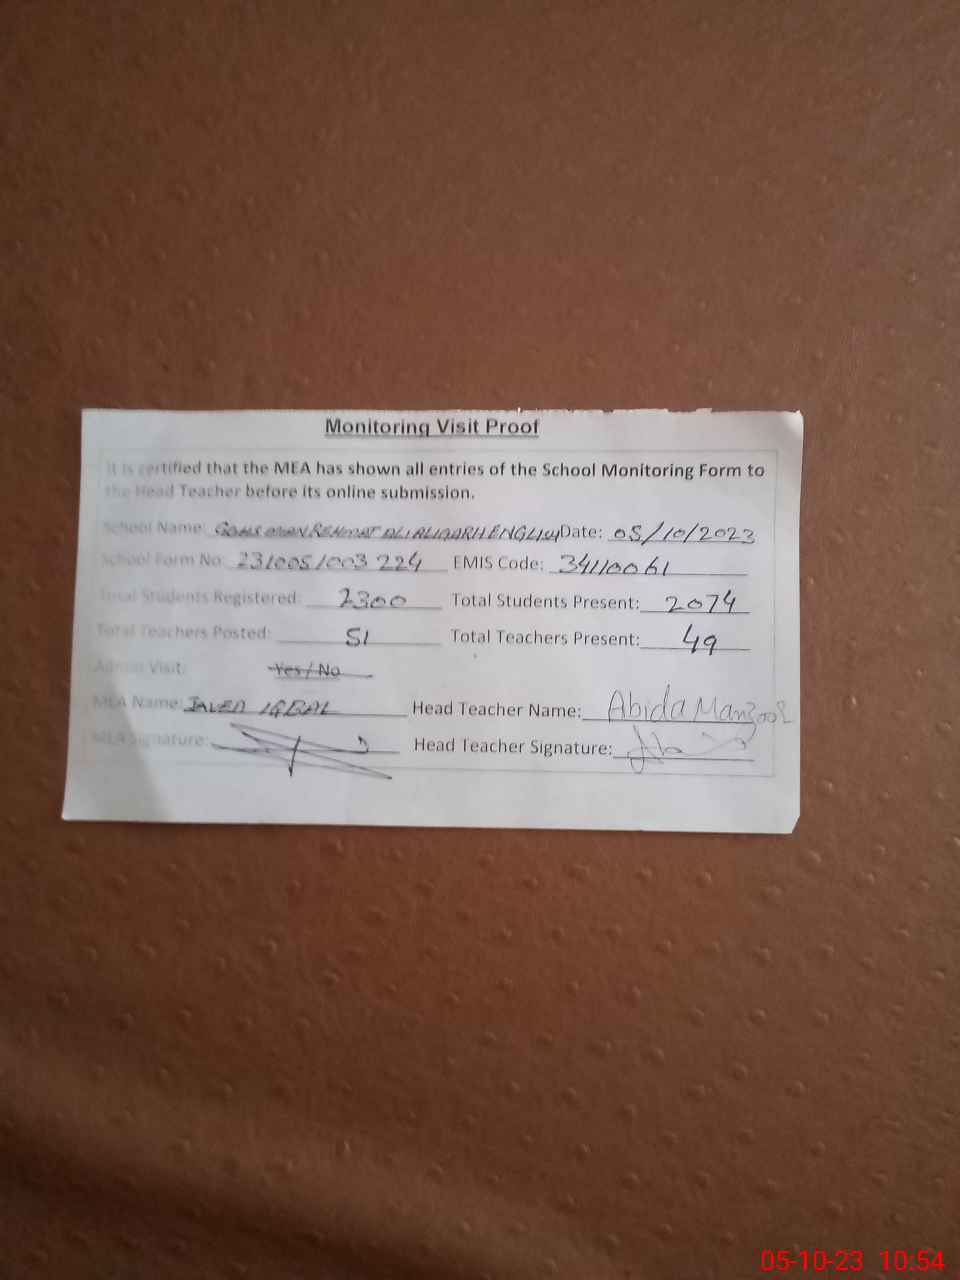 Monitoring Visit Proof
It is certified that the MEA has shown all entries of the School Monitoring Form to
the Head Teacher before its online submission.
School Name: REHMAT ALI ALIGARH ENGLISH Date: 05/10/2023
School Form No: 231005/003 224 EMIS Code: 34110061
Total Students Registered: 2300 Total Students Present: 2074
Total Teachers Posted: 51 Total Teachers Present: 49
Admin Visit: Yes / No
MEA Name: JAVED IQBAL Head Teacher Name: Abida Manzoor
MEA Signature: Head Teacher Signature:
05-10-23 10:54